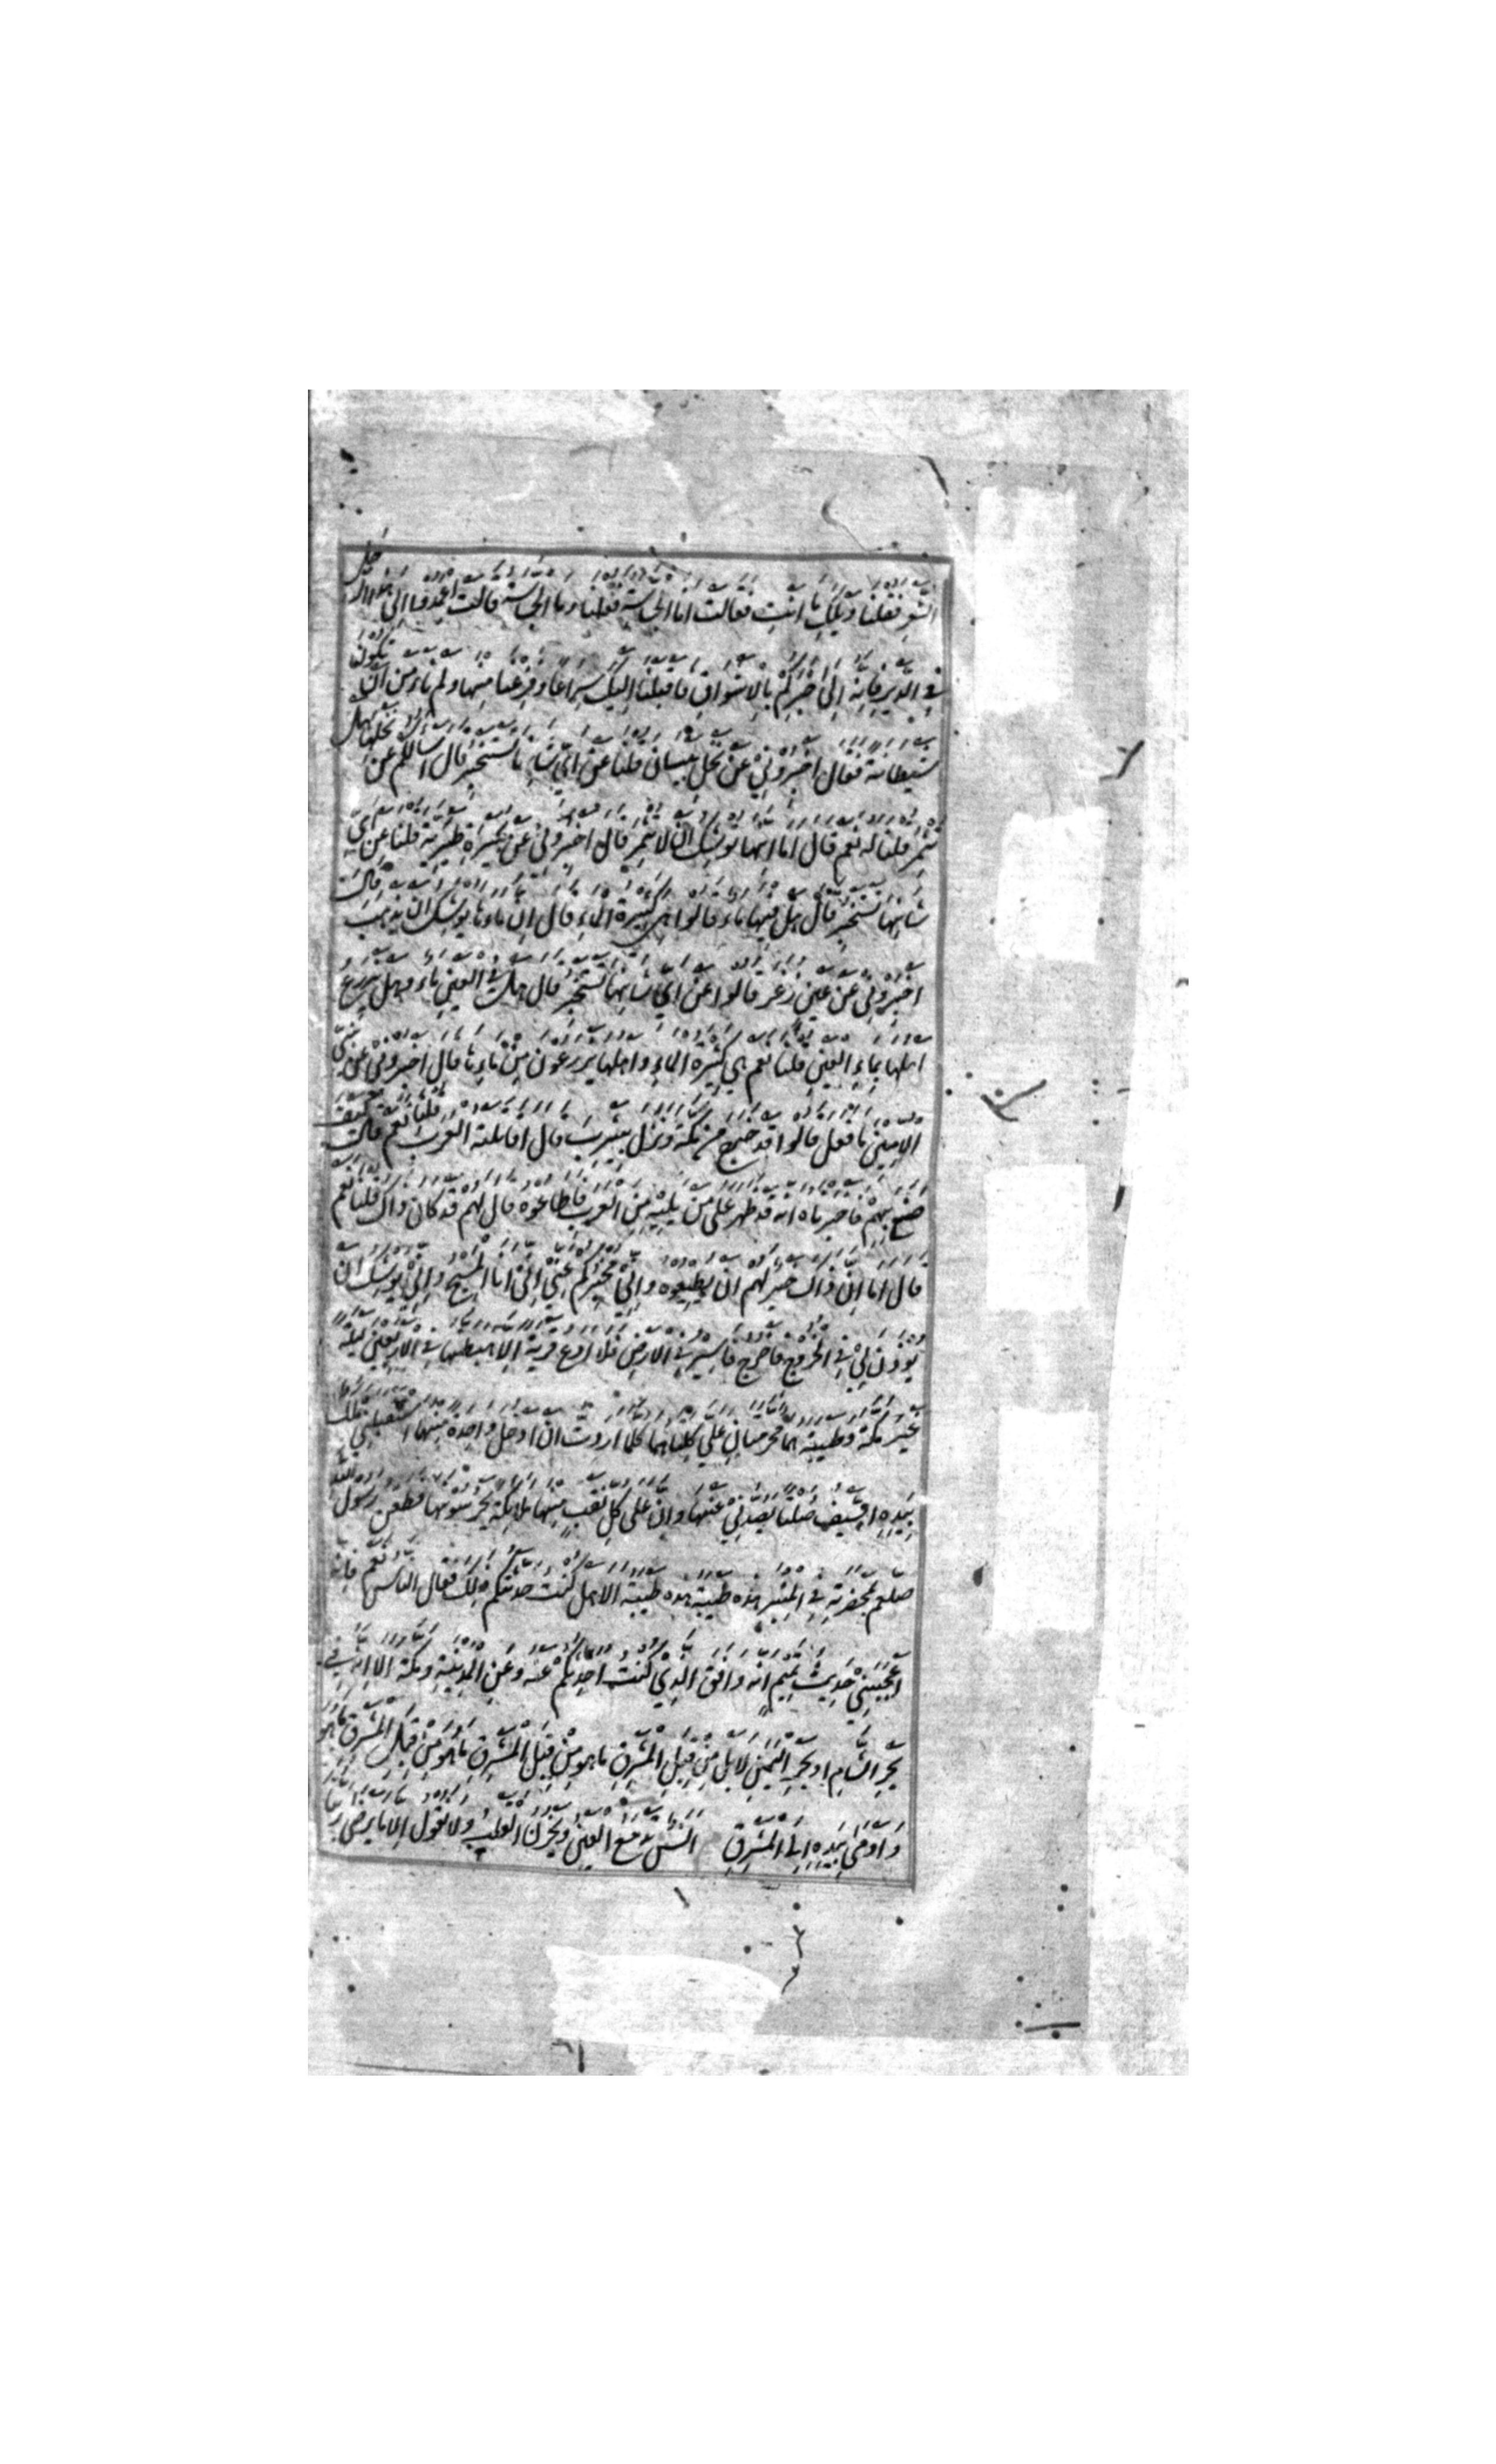 الشعر فقلنا ويلك ما انت فقالت انا الجساسة فقلنا وما الجساسة قالت اعمدوا الى هذا الرجل
في الدير فانه الى خبركم بالاشواق فاقبلنا اليك سراعا وفزعنا منها ولم نامن ان تكون
شيطانة فقال اخبروني عن نخل بيسان قلنا عن اي شانها تستخبر قال اسالكم عن نخلها هل
تثمر قلنا له نعم قال اما انها توشك ان لا تثمر قال اخبروني عن بحيرة طبرية قلنا عن اي
شانها تستخبر قال هل فيها ماء قالوا هي كثيرة الماء قال ان ماءها يوشك ان يذهب قال
اخبروني عن عين زغر قالوا عن اي شانها تستخبر قال هل في العين ماء وهل يزرع
اهلها بماء العين قلنا نعم هي كثيرة الماء واهلها يزرعون من ماءها قال اخبروني عن نبي
الاميين ما فعل قالوا قد خرج من مكة ونزل بيثرب قال اقاتلته العرب قلنا نعم قال كيف
صنع بهم فاخبرناه انه قد ظهر على من يليه من العرب فاطاعوه قال لهم قد كان ذاك قلنا نعم
قال اما ان ذاك خير لهم ان يطيعوه واني مخبركم عني اني انا المسيح واني يوشك ان
يوذن لي في الخروج فاخرج فاسير في الارض فلا ادع قرية الا هبطتها في الاربعين ليلة
غير مكة وطيبة هما محرمتان علي كلتاهما كلما اردت ان ادخل واحدة منهما استقبلني ملك
بيده السيف صلتا يصدني عنها وان على كل نقب منها ملائكة يحرسونها فطعن رسول الله
صلعم بمخصرته في المنبر هذه طيبة هذه طيبة الا هل كنت حدثتكم ذلك فقال الناس نعم فانه
اعجبني حديث تميم انه وافق الذي كنت احدثكم عنه وعن المدينة ومكة الا انه في
بحر الشام او بحر اليمن لا بل من قبل المشرق ما هو من قبل المشرق ما هو من قبل المشرق ما هو
واومي بيده الى المشرق العين ويحزن القلب ولا نقول الا ما يرضى ربنا